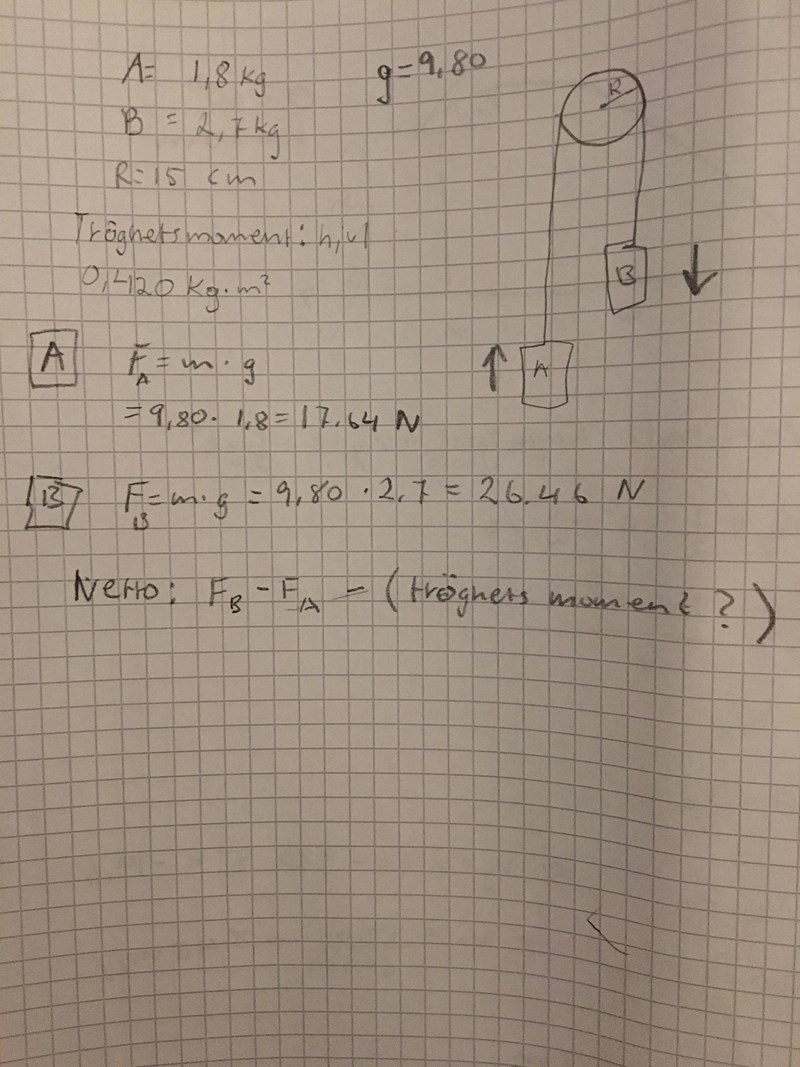 A= 1,8 kg
g=9,80
B = 2,7 kg
R=15 cm
Tröghetsmoment: hjul
0,420 kg·m²
R
B
A
A F_A = m·g
= 9,80· 1,8=17.64 N
B F_B=m·g = 9,80 ·2,7 = 26.46 N
Netto: F_B - F_A - (tröghets moment ?)